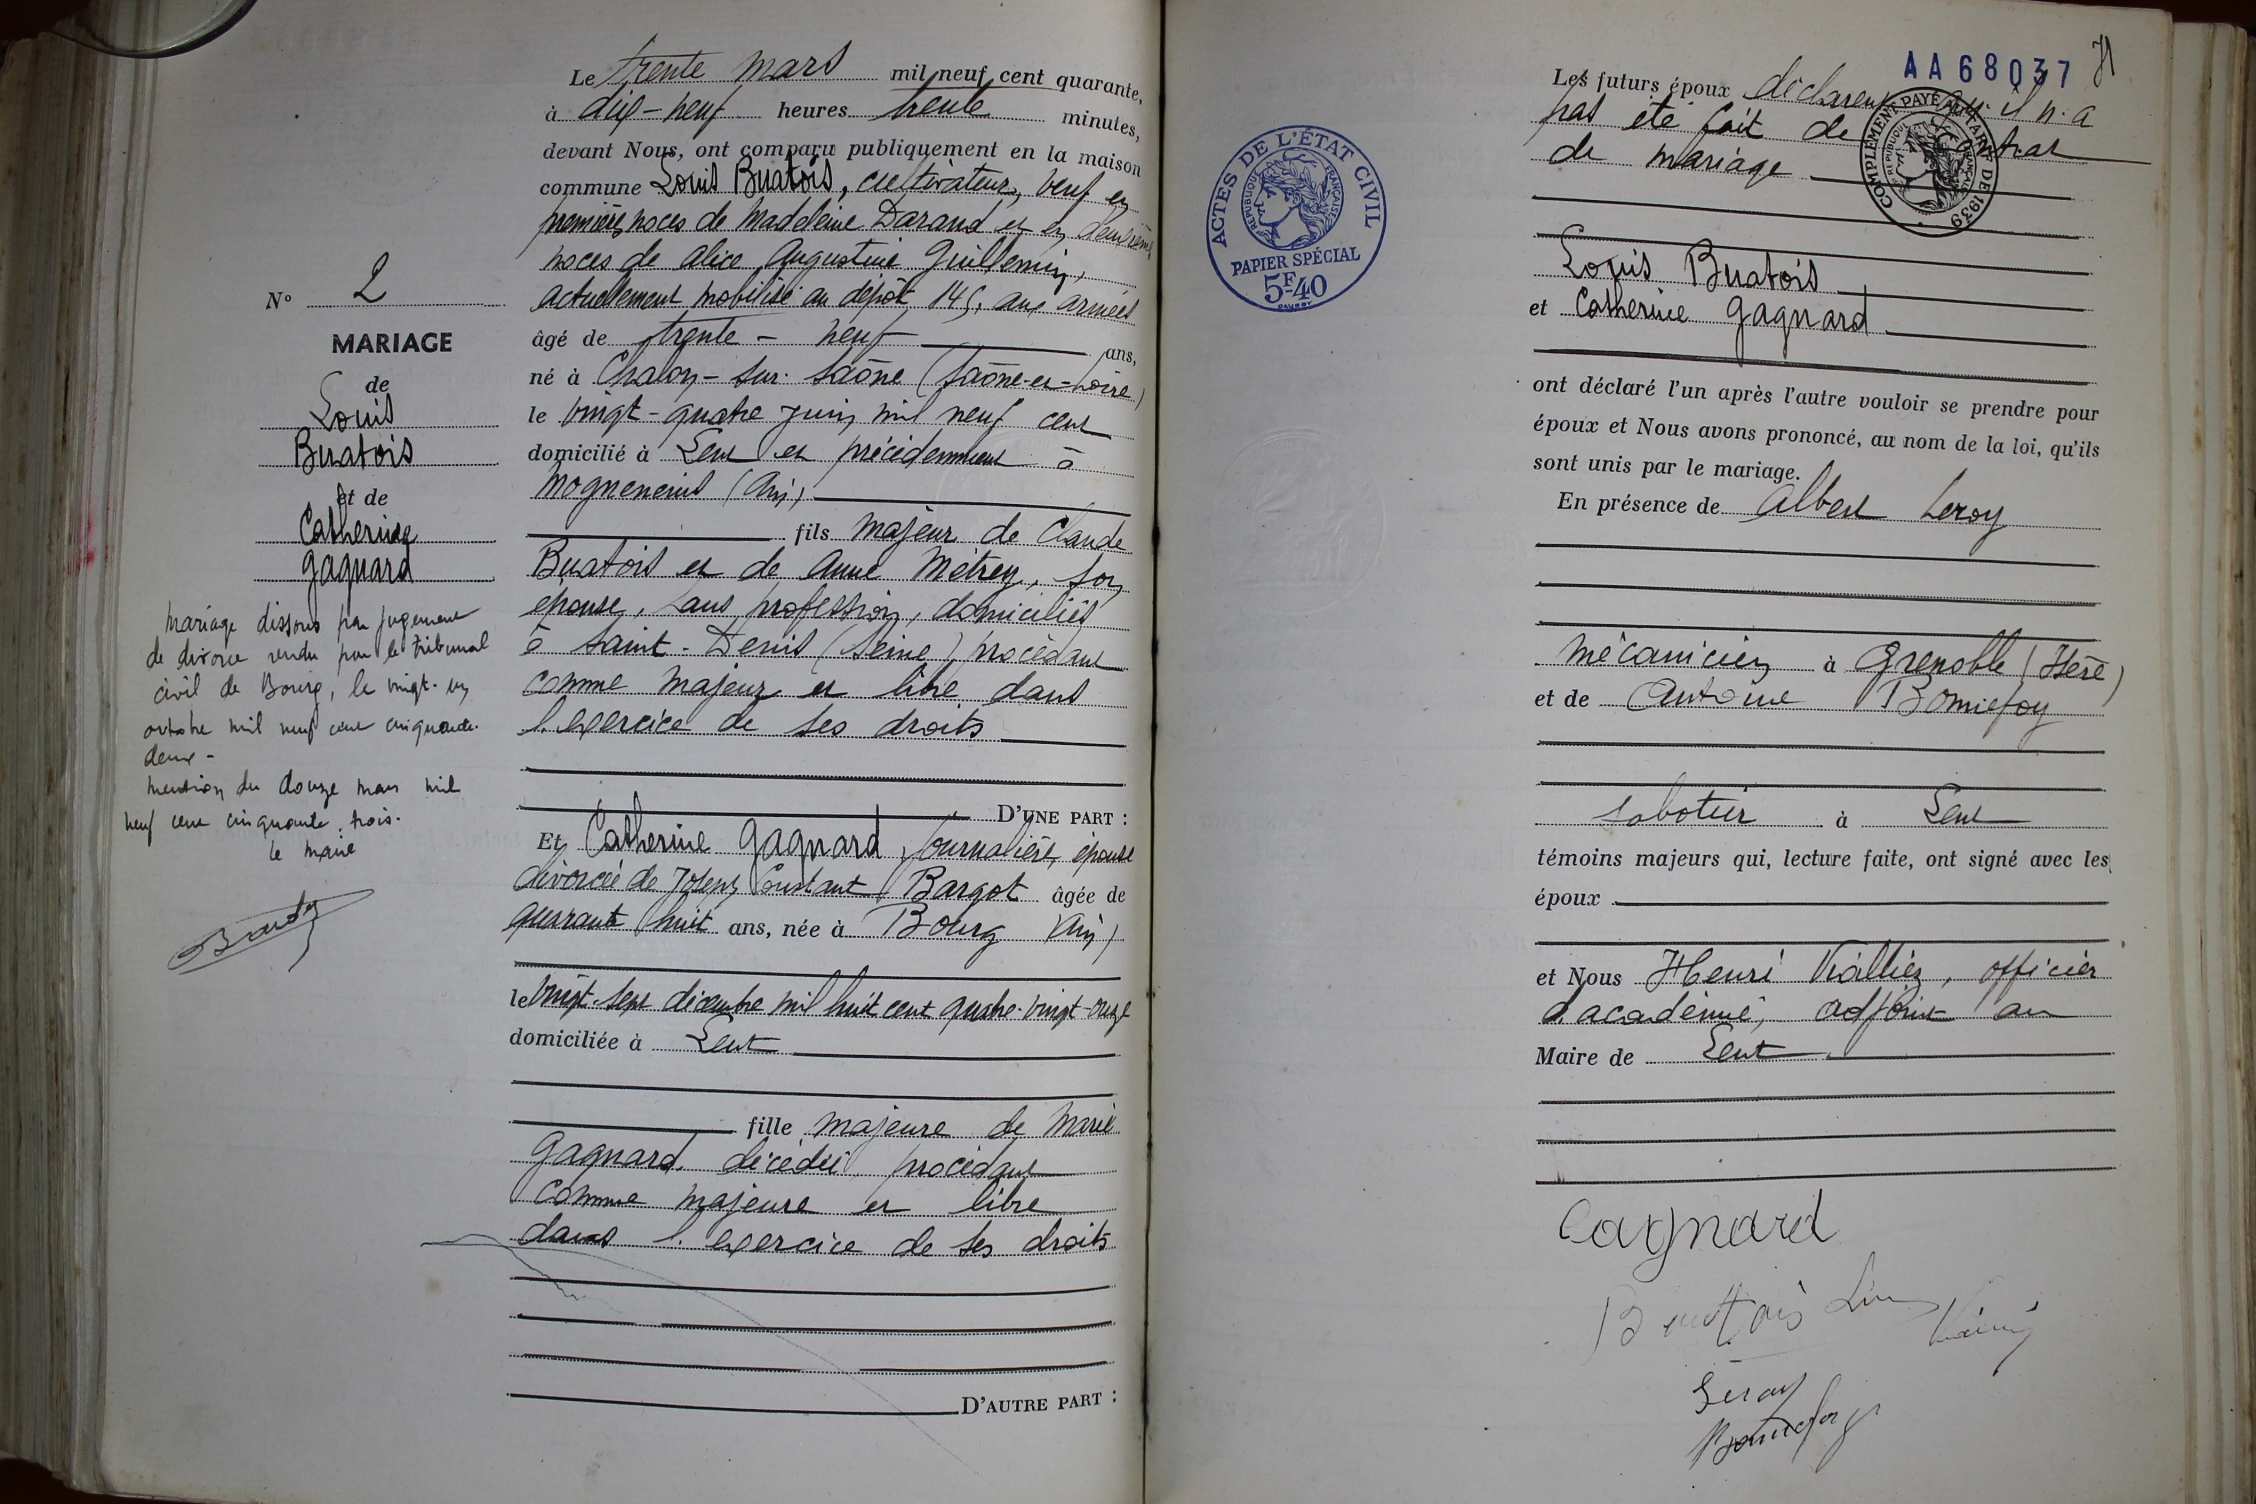 N° 2
MARIAGE
de
Louis
Buatois
et de
Catherine
Gagnard
Mariage dissous par jugement
de divorce rendu par le tribunal
civil de Bourg, le vingt-un
octobre mil neuf cent cinquante-
deux -
Mention du douze mars mil
neuf cent cinquante-trois.
le Maire
Le trente mars mil neuf cent quarante,
à dix-neuf heures trente minutes,
devant Nous, ont comparu publiquement en la maison
commune Louis Buatois, cultivateur, veuf en
premières noces de Madeleine Darand et en deuxièmes
noces de Alice Augustine Guillemin,
actuellement mobilisé au dépôt 145, aux armées
âgé de trente-neuf ans,
né à Chalon-sur-Saône (Saône-et-Loire)
le vingt-quatre juin mil neuf cent
domicilié à Lent et précédemment à
Mogneneins (Ain),
fils majeur de Claude
Buatois et de Anne Métrey, son
épouse, sans profession, domiciliés
à Saint-Denis (Seine) procédant
comme majeur et libre dans
l'exercice de ses droits
D'UNE PART :
Et Catherine Gagnard, journalière, épouse
divorcée de Joseph Constant Bargot âgée de
quarante huit ans, née à Bourg (Ain)
le vingt-sept décembre mil huit cent quatre-vingt-onze
domiciliée à Lent
fille majeure de Marie
Gagnard décédée procédant
comme majeure et libre
dans l'exercice de ses droits
D'AUTRE PART :
ACTES DE L'ÉTAT CIVIL
RÉPUBLIQUE FRANÇAISE
PAPIER SPÉCIAL
5F40
AA68037
71
COMPLÉMENT PAYÉ AU TARIF DE 1939
RÉPUBLIQUE FRANÇAISE
Les futurs époux déclarent qu'il n'a
pas été fait de contrat
de mariage
Louis Buatois
et Catherine Gagnard
ont déclaré l'un après l'autre vouloir se prendre pour
époux et Nous avons prononcé, au nom de la loi, qu'ils
sont unis par le mariage.
En présence de Albert Leroy
mécanicien à Grenoble (Isère)
et de Antoine Bonnefoy
sabotier à Lent
témoins majeurs qui, lecture faite, ont signé avec les
époux
et Nous Henri Viallier, officier
d'académie, adjoint au
Maire de Lent
Gagnard
Buatois Louis
Leroy
Bonnefoy